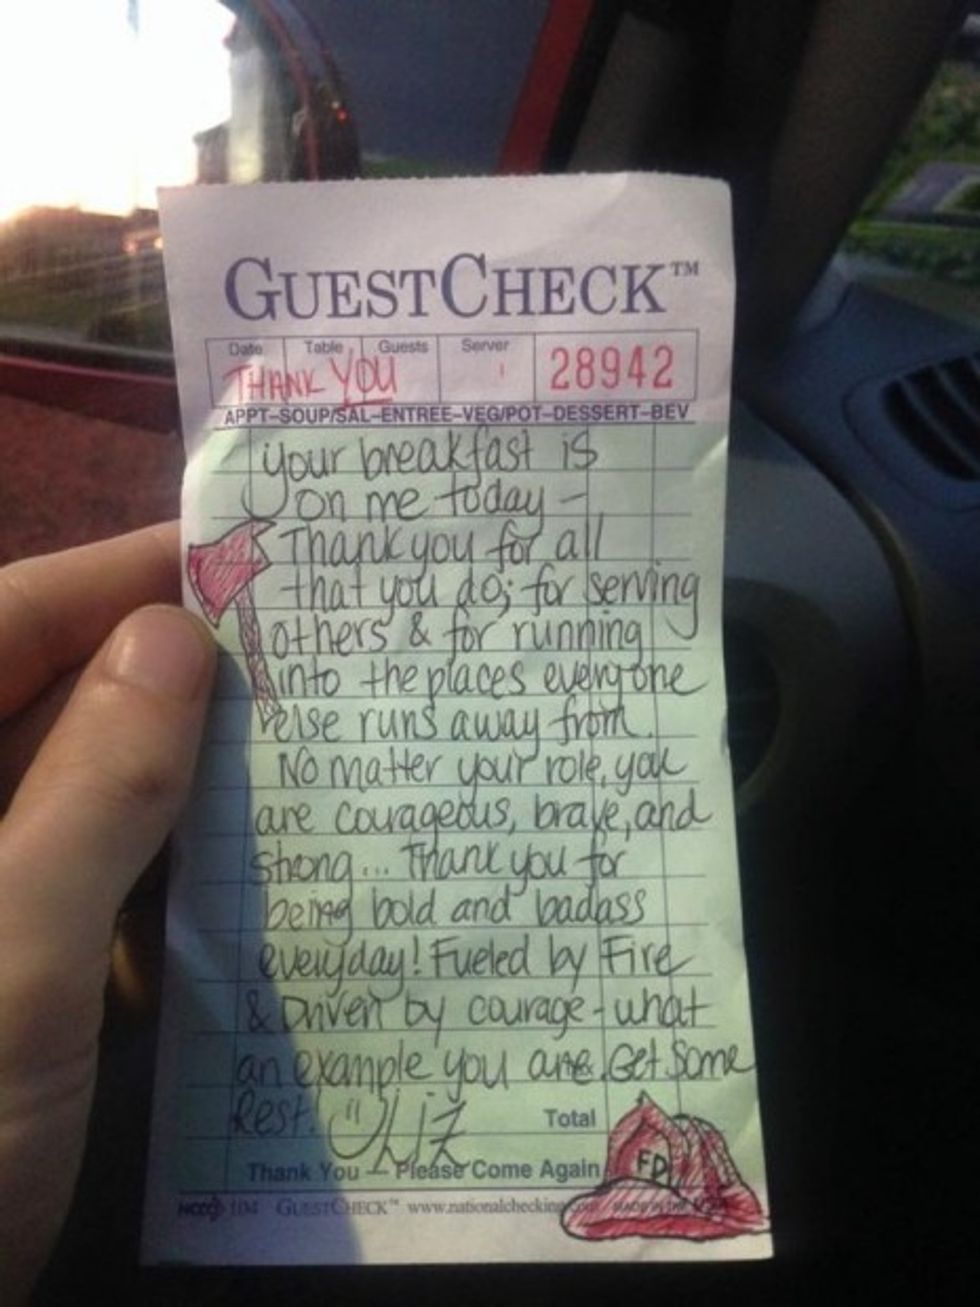 GUESTCHECK™
Date Table Guests Server
THANK YOU 28942
APPT–SOUP/SAL–ENTREE–VEG/POT–DESSERT–BEV
your breakfast is
on me today –
Thank you for all
that you do; for serving
others & for running
into the places everyone
else runs away from.
No matter your role, you
are courageous, brave, and
strong... Thank you for
being bold and badass
everyday! Fueled by Fire
& Driven by courage - what
an example you are. Get Some
Rest. Liz
Total
Thank You — Please Come Again
FD
NCCO 104 GUESTCHECK™ www.nationalchecking MADE IN THE